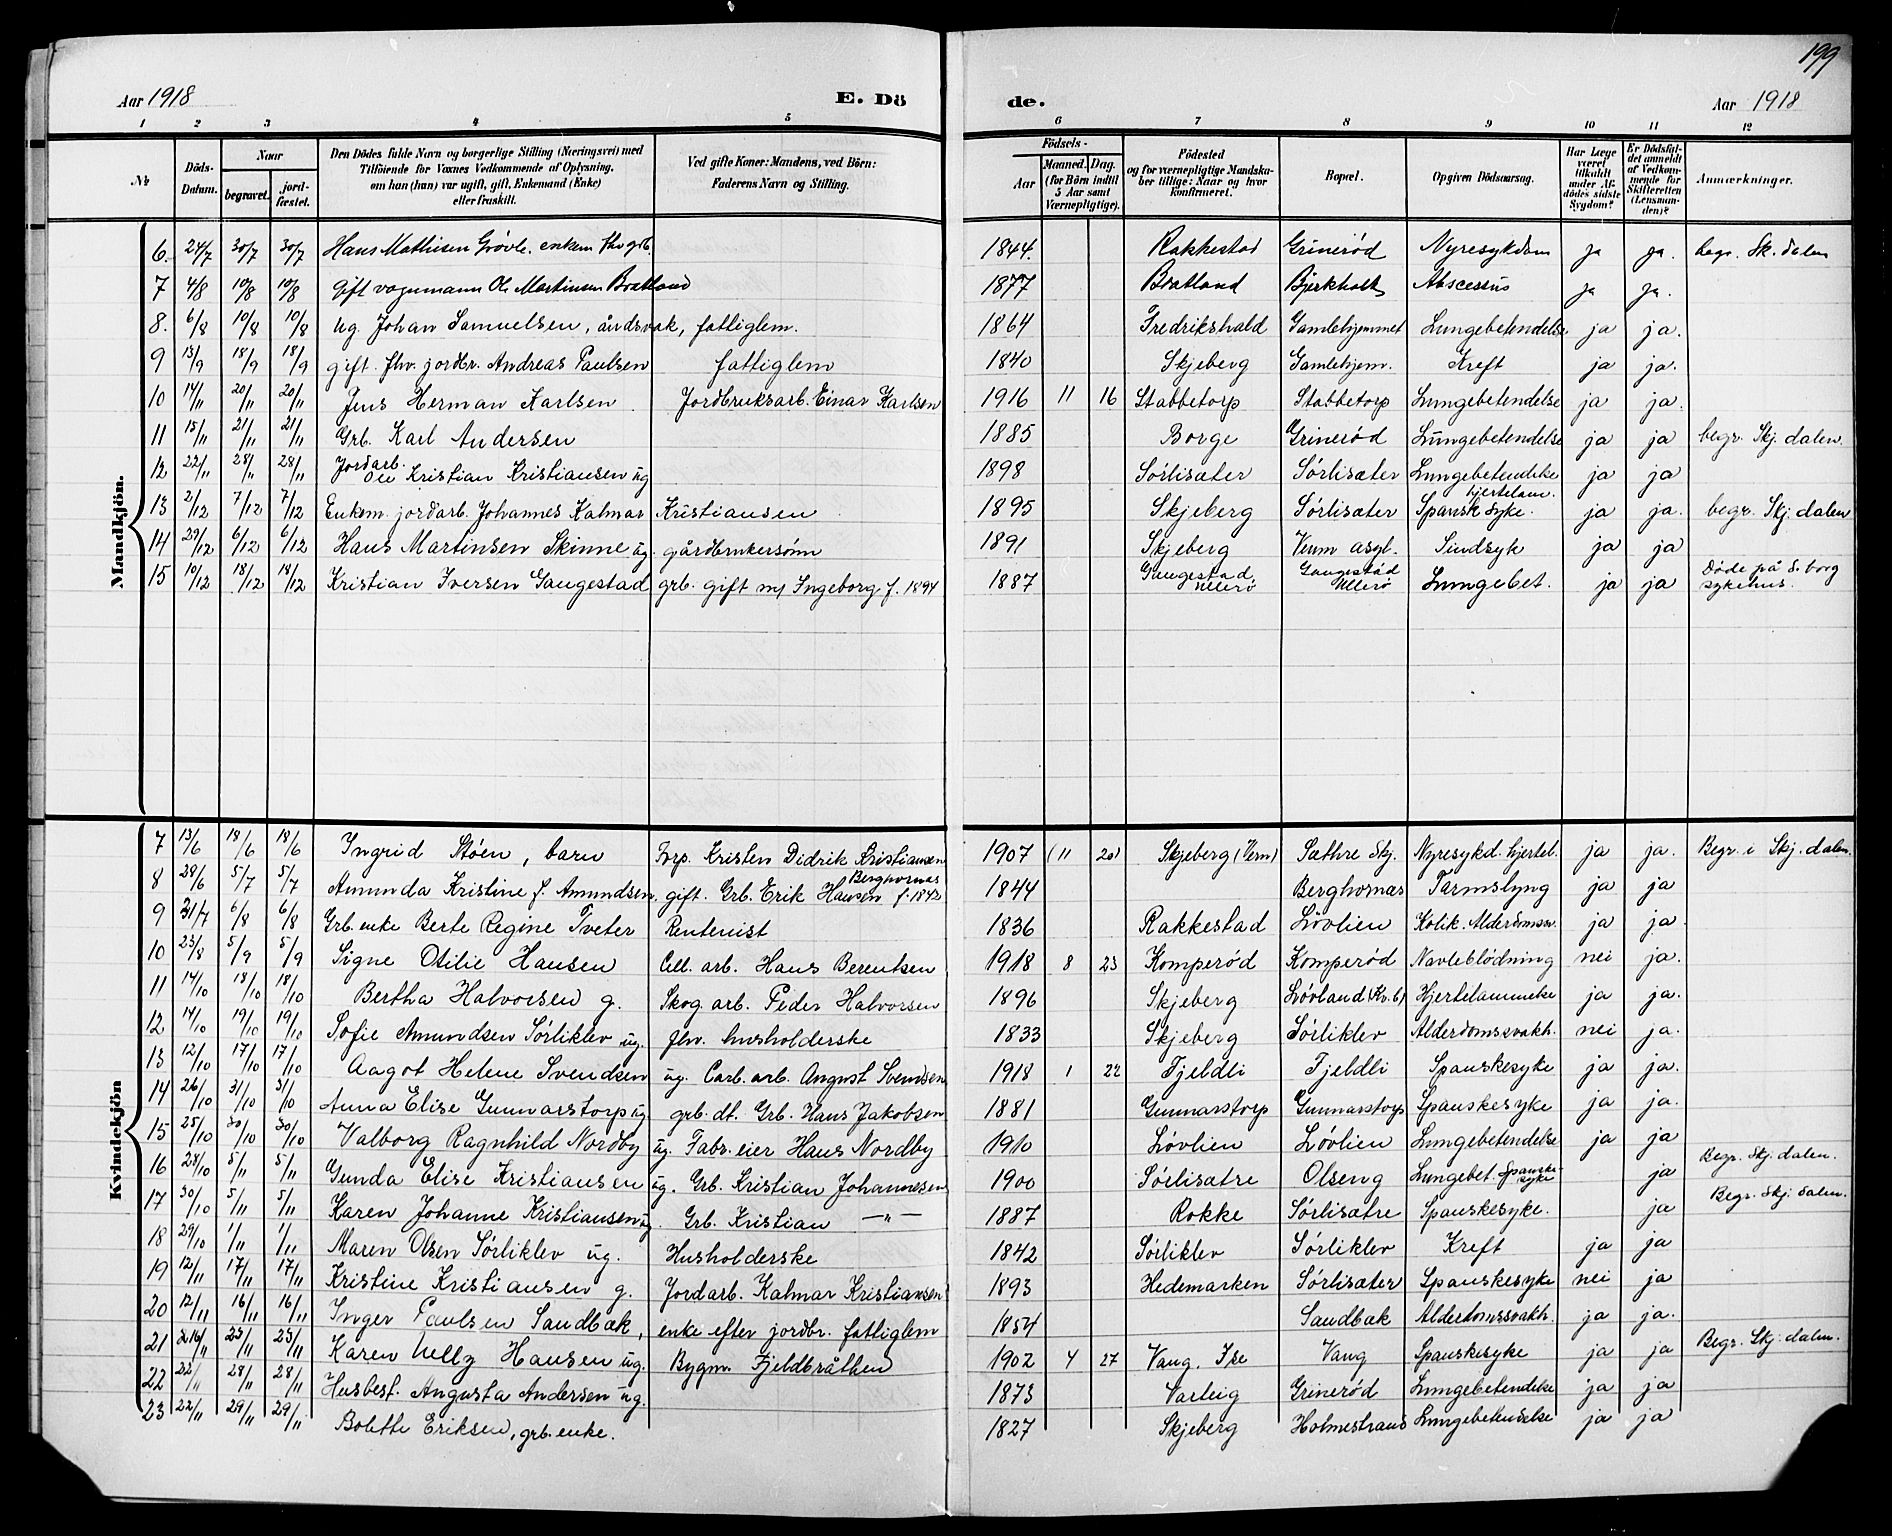 199
Aar 1918 E. Dö de. Aar 1918
1 2 3 4 5 6 7 8 9 10 11 12
No. Döds-Datum. Naar begravet. jord-fæstet. Den Dödes fulde Navn og borgerlige Stilling (Næringsvei) med Tilföiende for Voxnes Vedkommende af Oplysning, om han (hun) var ugift, gift, Enkemand (Enke) eller fraskilt. Ved gifte Koner: Mandens, ved Börn: Faderens Navn og Stilling. Födsels- Aar Maaned. Dag. (for Börn indtil 5 Aar samt Værnepligtige). Födested og for værnepligtige Mandskaber tillige: Naar og hvor konfirmeret. Bopæl. Opgiven Dödsaarsag. Har Læge været tilkaldt under Afdödes sidste Sygdom? Er Dödsfaldet anmeldt af Vedkommende for Skifteretten (Lensmanden)? Anmærkninger.
Mandkjön.
6. 24/7 30/7 30/7 Hans Mathisen Grøvle. enkem fhv grb. 1844. Rakkestad Grinerød Nyresykdom ja ja. begr. Sk. dalen
7 4/8 10/8 10/8 Gift vognmann Ole Martinsen Bratland 1877 Bratland Bjerkholt Abscessus ja ja.
8. 6/8 10/8 10/8 Ug. Johan Samuelsen, åndsvak, fattiglem. 1864 Fredrikshald Gamlehjemmet Lungebetendelse ja ja.
9 13/9 18/9 18/9 gift. fhv. jordbr. Andreas Paulsen fattiglem 1840 Skjeberg Gamlehjem. Kreft ja ja.
10 14/11 20/11 20/11 Jens Herman Karlsen Jordbruksarb. Einar Karlsen 1916 11 16 Stabbetorp Stabbetorp Lungebetendelse ja ja.
11 15/11 21/11 21/11 Grb. Karl Andersen 1885 Borge Grinerød Lungebetendelse ja ja begr. Skj. dalen.
12 22/11 28/11 28/11 Jordarb. Ole Kristian Kristiansen ug 1898 Sørlisæter Sørlisæter Lungebetendlse ja ja
13 2/12 7/12 7/12 Enkem. jordarb. Johannes Kalmar Kristiansen 1895 Skjeberg Sørlisæter Spansk syke. hjertelam. ja ja. begr. Skj. dalen
14 29/12 6/12 6/12 Hans Martinsen Skinne ug. gårdbrukersønn 1891 Skjeberg Veum asyl. Sindsyk ja ja
15 10/12 18/12 18/12 Kristian Iversen Gaugestad grb. gift m/ Ingeborg f. 1894 1887 Gaugestad, Ullerø Gaugestad Ullerø Lungebet. ja ja Døde på S. borg sykehus.
Kvindekjön
7 13/6 18/6 18/6 Ingrid Støen, barn Forp. Kristen Didrik Kristiansen 1907 (11 20) Skjeberg (Vern) Sæthre Skj. Nyresykd. hjerteb. ja ja. Begr. i Skj. dalen.
8 28/6 5/7 5/7 Amunda Kristine f. Amundsen, gift. Grb. Erik Hansen Berghornæs f. 1842 1844 Berghornæs Tarmslyng ja ja
9 31/7 6/8 6/8 Grb. enke Berte Regine Tveter Rentenist 1836 Rakkestad Løvlien Kolik. Alderdomssv. ja ja.
10 23/8 5/9 5/9 Signe Otilie Hansen Cell. arb. Hans Berentsen 1918 8 23 Komperød Komperød Navleblødning nei ja.
11 14/10 18/10 18/10 Bertha Halvorsen g. Skog. arb. Peder Halvorsen 1896 Skjeberg Løvland (Kv. b) Hjertelammelse ja ja.
12 14/10 19/10 19/10 Sofie Amundsen Sørliklev ug. fhv. husholderske 1833 Skjeberg Sørliklev Alderdomssvakh. nei ja.
13 12/10 17/10 17/10 Aagot Helene Svendsen ug. Carb. arb. August Svendsen 1918 1 22 Fjeldli Fjeldli Spanskesyke ja ja.
14 26/10 31/10 31/10 Anna Elise Gunnarstorp ug grb. dt. Grb. Hans Jakobsen 1881 Gunnarstorp Gunnarstorp Spanskesyke ja ja.
15 25/10 30/10 30/10 Valborg Ragnhild Nordby ug. Fabr. eier Hans Nordby 1910 Løvlien Løvlien Lungebetendelse ja ja
16 28/10 5/11 5/11 Gunda Elise Kristiansen ug. Grb. Kristian Johannesen 1900 Sørlisætre Olseng Lungebet. Spanske-syke ja Begr. Skj. dalen.
17 30/10 5/11 5/11 Karen Johanne Kristiansen ug. Grb. Kristian —"— 1887 Rokke Sørlisætre Spanskesyke. ja Begr. Skj. dalen.
18 29/10 1/11 1/11 Maren Olsen Sørliklev ug. Husholderske 1842 Sørliklev Sørliklev Kreft ja ja
19 12/11 17/11 17/11 Kristine Kristiansen g. Jordarb. Kalmar Kristiansen 1893 Hedemarken Sørlisæter Spanskesyke nei ja
20 12/11 16/11 16/11 Inger Paulsen Sandbæk, enke efter jordbr. fattiglem 1854 Sandbæk Alderdomssvakh. ja ja.
21 16/11 23/11 23/11 Karen Nelly Hansen ug. Bygm. Fjeldbråthen 1902 4 27 Vang. Ise Vang Spanskesyke ja ja Begr. Skj. dalen.
22 22/11 28/11 28/11 Husbest. Augusta Andersen ug. 1873 Varteig Grinerød Lungebetendelse ja ja
23 22/11 29/11 29/11 Bolette Eriksen, grb. enke. 1827 Skjeberg Holmestrand Lungebetendelse ja ja